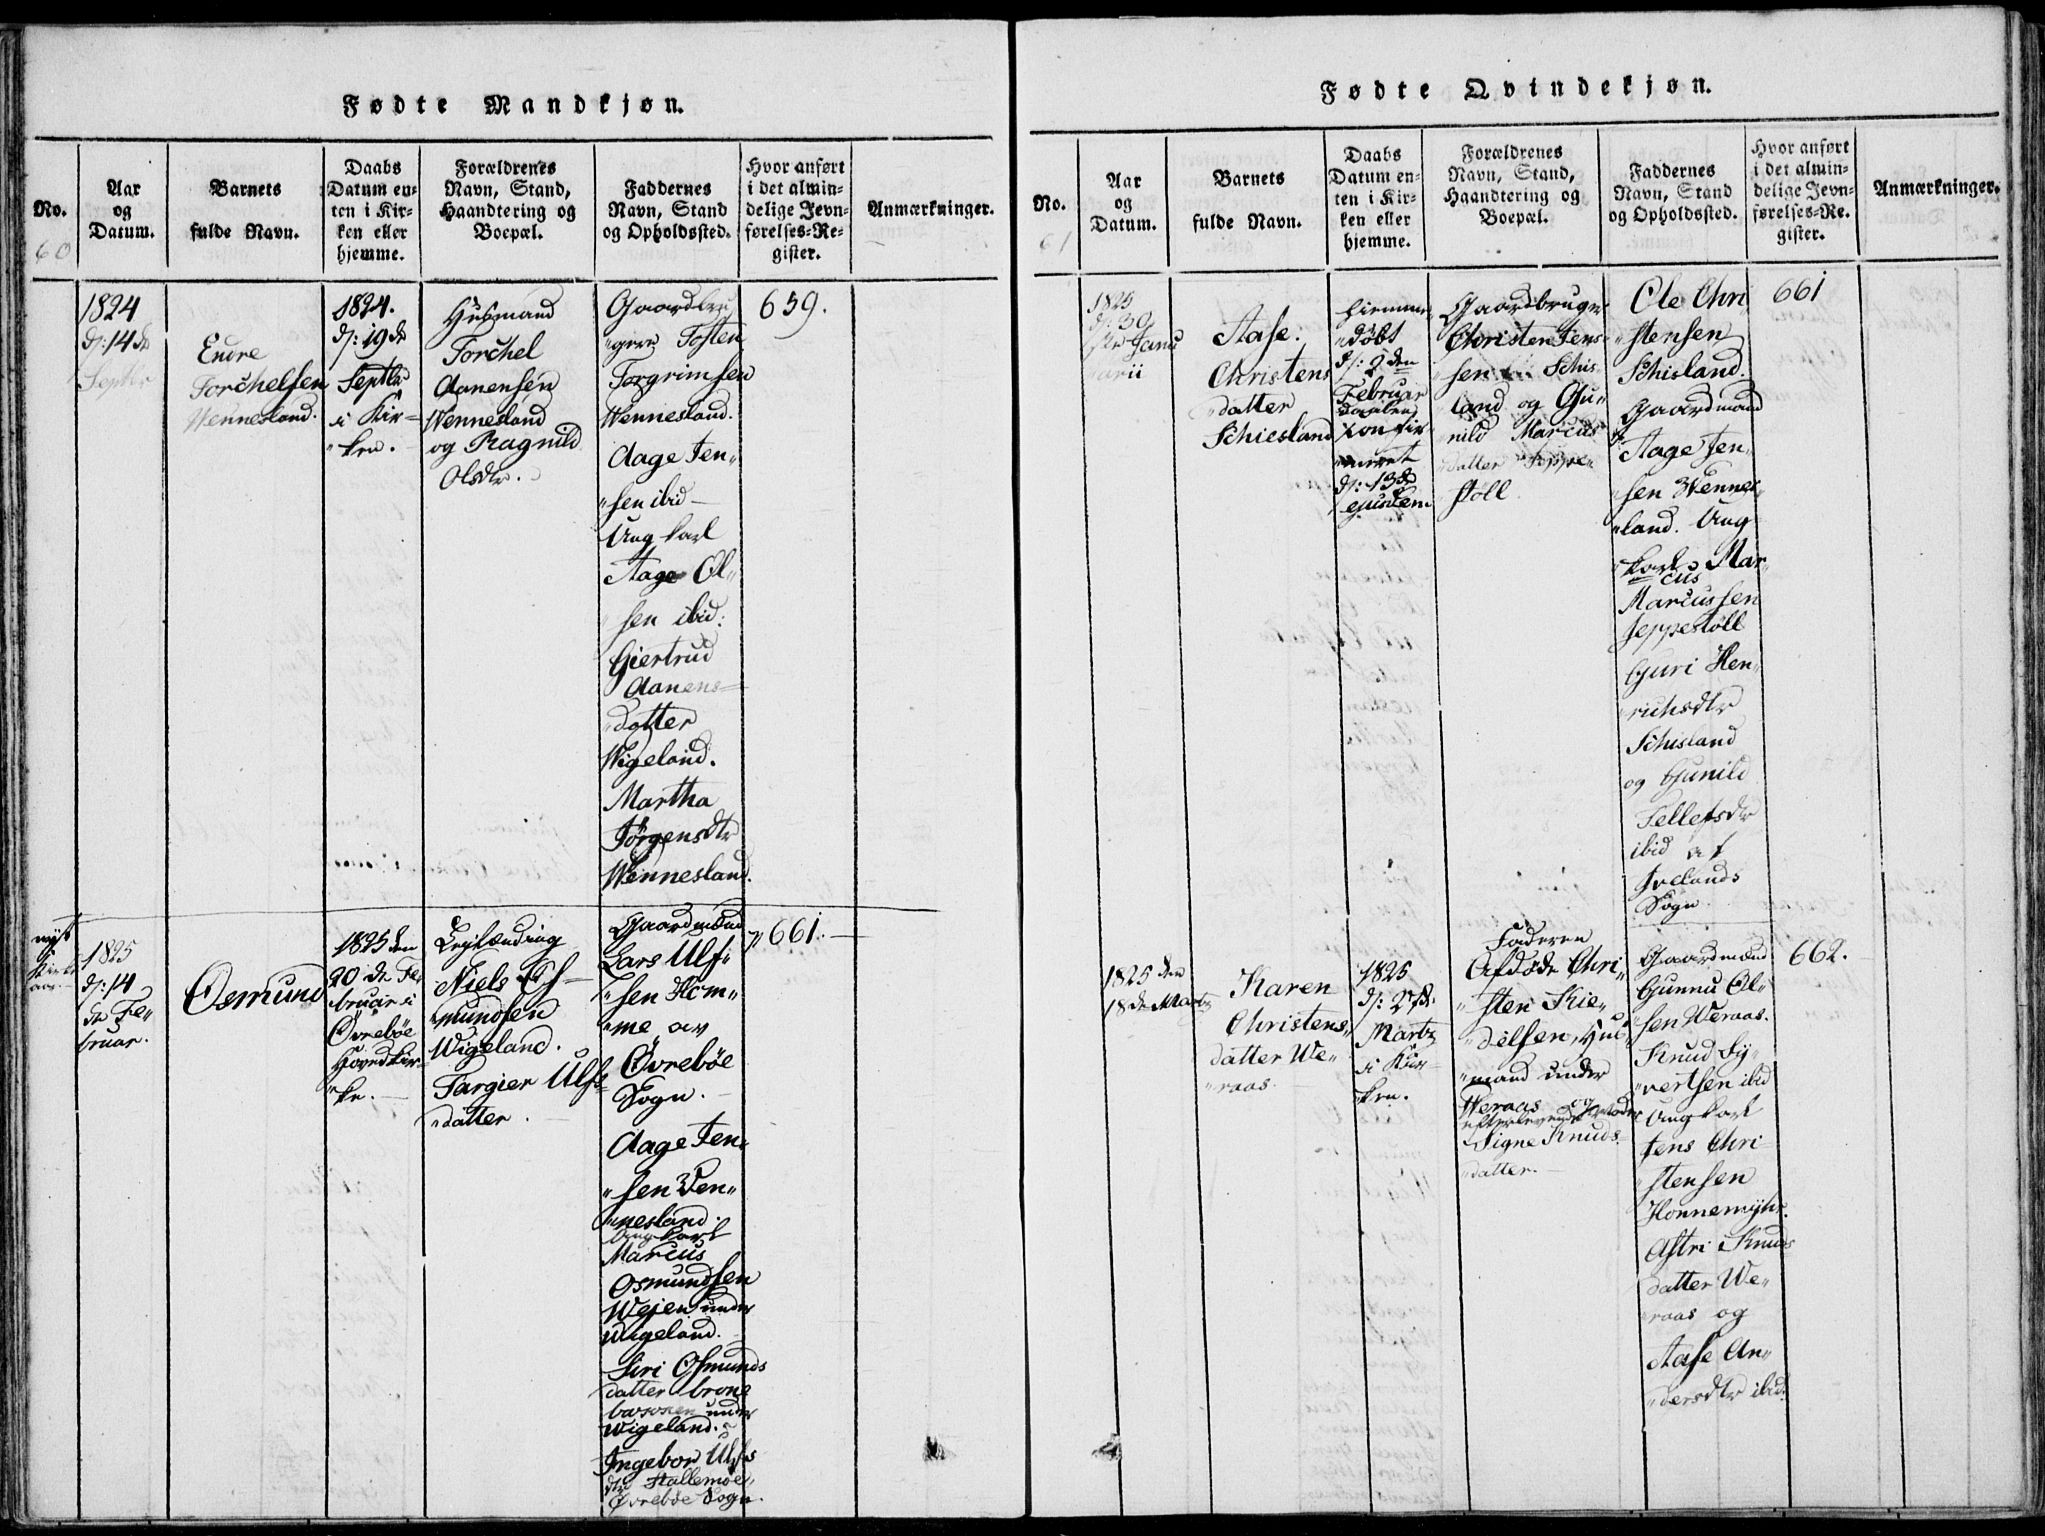 Fødte Mandkjøn.
No.
60
Aar
og
Datum.
Barnets
fulde Navn.
Daabs
Datum en-
ten i Kir-
ken eller
hjemme.
Forældrenes
Navn, Stand,
Haandtering og
Boepæl.
Faddernes
Navn, Stand
og Opholdssted.
Hvor anført
i det almin-
delige Jevn-
førelses-Re-
gister.
Anmærkninger.
1824
d: 14 de
Septbr
Endre
Torchelsen
Wennesland.
1824.
d: 19 de
Septbr
i Kir-
„ken.
Husmand
Torchel
Aanensen
Wennesland
og Ragnild
Olsdtr.
Gaardbru
„gere Tosten
Torgrimsen
Wennesland.
Aage Jen„
„sen ibid
Ung karl
Aage Ol„
„sen ibid:
Giertrud
Aanens=
„datter
Wigeland.
Martha
Jörgensdtr
Wennesland.
659.
nyt
Kirke
aar
1825
d: 14
de Fe„
bruar.
Osmund
1825 den
20 de Fe„
bruar i
Øvrebøe
Hovedkir„
„ke.
Leylænding
Niels Os-
mundsen
Wigeland.
Targier Ulfs
„datter.
Gaardmænd
Lars Ulf„
„sen Hom„
„me av
Øvrebøe
Sogn.
Aage Jen„
„sen Wen„
„nesland.
Ungkarl
Marcus
Osmundsen
Wejen under
Wigeland.
Siri Osmunds
datter
under
Wigeland.
Ingebor Ulfs
dtr Stallemoe,
Øvrebøe Sogn.
661.
Fødte Qvindekjøn.
No.
61
Aar
og
Datum.
Barnets
fulde Navn.
Daabs
Datum en-
ten i Kir-
ken eller
hjemme.
Forældrenes
Navn, Stand,
Haandtering og
Boepæl.
Faddernes
Navn, Stand
og Opholdssted.
Hvor anført
i det almin-
delige Jevn-
førelses-Re-
gister.
Anmærkninger.
1825
d: 30
Janu
arii
Aase.
Christens
„datter
Schiesland
hiemme
„döbt
d: 2 den
Februar
Daaben
Confir
„meret
d: 13 de
ejusdem
Gaardbruger
Christen Jens„
„sen Schis„
land og Gu„
nild Marcus
„datter Jeppe„
stöll.
Ole Chri
„stensen
Schisland.
Gaardmand
Aage Jen„
„sen Wennes„
„land. Ung
„karl Mar„
cus
Marcussen
Jeppestöll
Guri Hen„
„richsdtr
Schisland
og Gunild
Tellefsdtr
ibid af
Ivelands
Sogn.
661
1825 den
18 de Martz
Karen
Christens„
datter We„
„raas.
1825
d: 27 de
Martz
i Kir
„ken.
Faderen
Afdöde Chri„
„sten Kie„
„delsen, Huus
„mand under
Weraas og
efterlevende Moder
Signe Knuds
„datter.
Gaardmænd
Gunnu Ol„
„sen Weraas.
Knud Sy„
„vertsen ibid
Ungkarl
Jens Chri
„stensen
Honnemyhr.
Astri Knuds
datter We„
„raas og
Aase An„
„dersdtr ibid.
662.